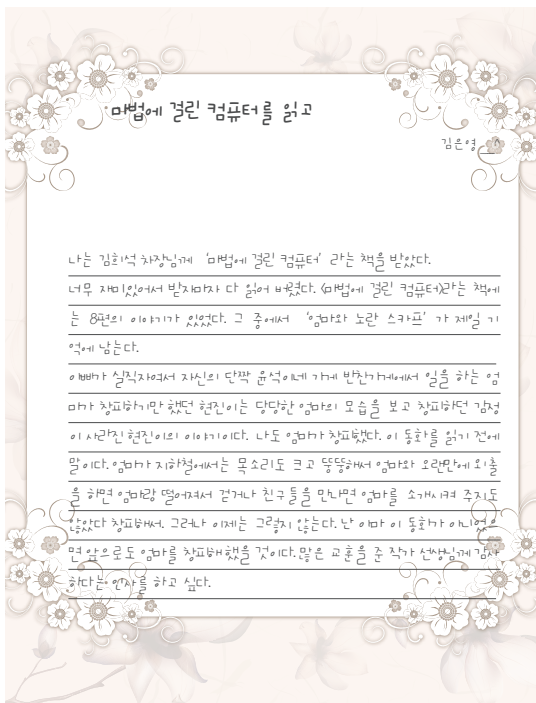 마법에 걸린 컴퓨터를 읽고
김은영 ^_^
나는 김희석 차장님께 '마법에 걸린 컴퓨터' 라는 책을 받았다.
너무 재미있어서 받자마자 다 읽어 버렸다. <마법에 걸린 컴퓨터>라는 책에
는 8편의 이야기가 있었다. 그 중에서 '엄마와 노란 스카프' 가 제일 기
억에 남는다.
아빠가 실직자여서 자신의 단짝 윤석이네 가게 반찬가게에서 일을 하는 엄
마가 창피하기만 했던 현진이는 당당한 엄마의 모습을 보고 창피하던 감정
이 사라진 현진이의 이야기이다. 나도 엄마가 창피했다. 이 동화를 읽기 전에
말이다. 엄마가 지하철에서는 목소리도 크고 뚱뚱해서 엄마와 오랜만에 외출
을 하면 엄마랑 떨어져서 걷거나 친구들을 만나면 엄마를 소개시켜 주지도
않았다 창피해서. 그러나 이제는 그렇지 않는다. 난 아마 이 동화가 아니었으
면 앞으로도 엄마를 창피해했을 것이다. 많은 교훈을 준 작가 선생님께 감사
하다는 인사를 하고 싶다.